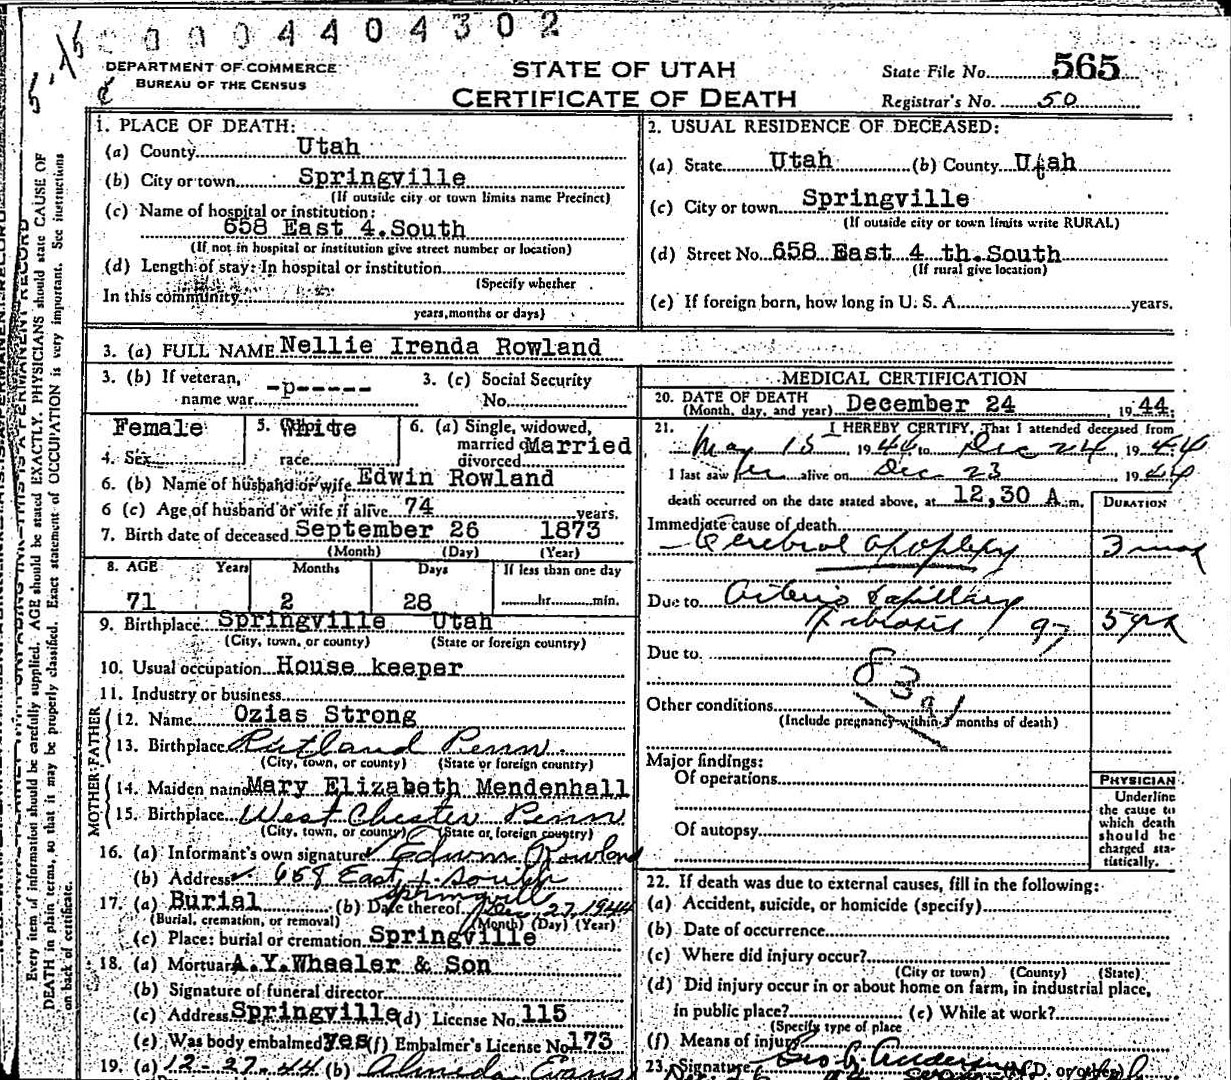 0004404302
DEPARTMENT OF COMMERCE
BUREAU OF THE CENSUS
STATE OF UTAH
CERTIFICATE OF DEATH
State File No. 565
Registrar's No. 50
1. PLACE OF DEATH:
(a) County Utah
(b) City or town Springville
(If outside city or town limits name Precinct)
(c) Name of hospital or institution:
658 East 4.South
(If not in hospital or institution give street number or location)
(d) Length of stay: In hospital or institution
(Specify whether
In this community
years, months or days)
2. USUAL RESIDENCE OF DECEASED:
(a) State Utah (b) County Utah
(c) City or town Springville
(If outside city or town limits write RURAL)
(d) Street No. 658 East 4 th.South
(If rural give location)
(e) If foreign born, how long in U. S. A. years.
3. (a) FULL NAME Nellie Irenda Rowland
3. (b) If veteran,
name war
3. (c) Social Security
No.
Female
4. Sex
5. White
race
6. (a) Single, widowed,
married Married
divorced
6. (b) Name of husband or wife Edwin Rowland
6 (c) Age of husband or wife if alive 74 years.
7. Birth date of deceased September 26 1873
(Month) (Day) (Year)
8. AGE Years Months Days If less than one day
71 2 28 hr. min.
9. Birthplace Springville Utah
(City, town, or county) (State or foreign country)
10. Usual occupation House keeper
11. Industry or business
FATHER
12. Name Ozias Strong
13. Birthplace Rutland Penn.
(City, town, or county) (State or foreign country)
MOTHER
14. Maiden name Mary Elizabeth Mendenhall
15. Birthplace West Chester Penn
(City, town, or county) (State or foreign country)
16. (a) Informant's own signature Edwin Rowland
(b) Address 658 East 4 South
Springville
17. (a) Burial (b) Date thereof Dec. 27, 1944
(Burial, cremation, or removal) (Month) (Day) (Year)
(c) Place: burial or cremation Springville
18. (a) Mortuary A.Y.Wheeler & Son
(b) Signature of funeral director
(c) Address Springville (d) License No. 115
(e) Was body embalmed yes (f) Embalmer's License No. 173
19. (a) 12-27-44 (b) Almeda Evans
MEDICAL CERTIFICATION
20. DATE OF DEATH
(Month, day, and year) December 24, 1944.
21. I HEREBY CERTIFY, That I attended deceased from
May 15, 1944 to Dec 24, 1944
I last saw her alive on Dec 23 1944
death occurred on the date stated above, at 12,30 A.m.
DURATION
Immediate cause of death
Cerebral apoplexy 3 mos
Due to Arterio Capillary
Fibrosis 97 5 yrs
Due to
83a1
Other conditions
(Include pregnancy within 3 months of death)
Major findings:
Of operations
Of autopsy
PHYSICIAN
Underline
the cause to
which death
should be
charged sta-
tistically.
22. If death was due to external causes, fill in the following:
(a) Accident, suicide, or homicide (specify)
(b) Date of occurrence
(c) Where did injury occur?
(City or town) (County) (State)
(d) Did injury occur in or about home on farm, in industrial place,
in public place? (e) While at work?
(Specify type of place
(f) Means of injury
23. Signature Geo G. Anderson (M.D. or other)
Every item of information should be carefully supplied. AGE should be stated EXACTLY. PHYSICIANS should state CAUSE OF
DEATH in plain terms, so that it may be properly classified. Exact statement of OCCUPATION is very important. See instructions
on back of certificate.